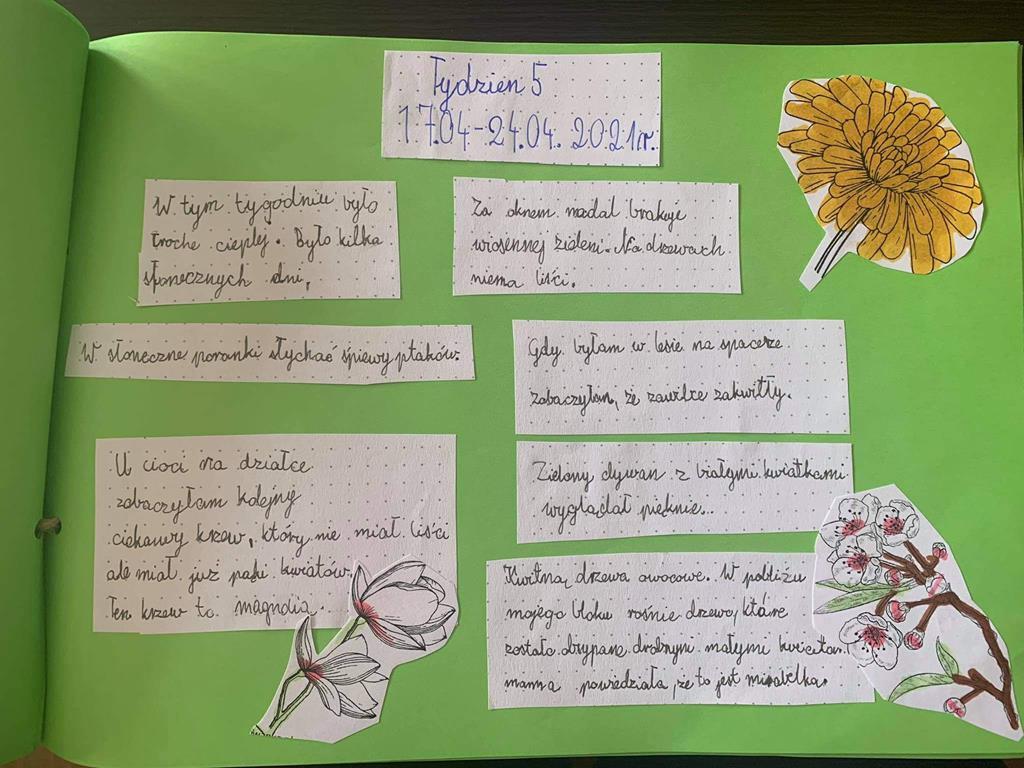 Tydzień 5
17.04-24.04.2021r.
W tym tygodniu było
troche cieplej. Było kilka
słonecznych dni.
Za oknem nadal brakuje
wiosennej zieleni. Na drzewach
niema liści.
W słoneczne poranki słychać śpiewy ptaków.
Gdy byłam w lesie na spacerze
zobaczyłam, że zawilce zakwitły.
U cioci na działce
zobaczyłam kolejny
ciekawy krzew, który nie miał liści
ale miał już pąki kwiatów.
Ten krzew to magnolia.
Zielony dywan z białymi kwiatkami
wyglądał pięknie.
Kwitną drzewa owocowe. W pobliżu
mojego bloku rośnie drzewo, które
zostało obsypane drobnymi małymi
mama powiedziała, że to jest mirabelka.